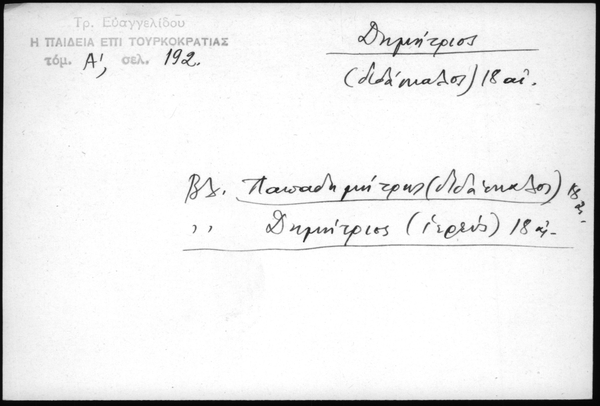 Τρ. Εὐαγγελίδου
Η ΠΑΙΔΕΙΑ ΕΠΙ ΤΟΥΡΚΟΚΡΑΤΙΑΣ
τόμ. Α', σελ. 192.
Δημήτριος
(διδάσκαλος) 18 αἰ.
Βλ. Παπαδημήτρης (διδάσκαλος) 18 αἰ.
,, Δημήτριος (ἱερεύς) 18 αἰ.